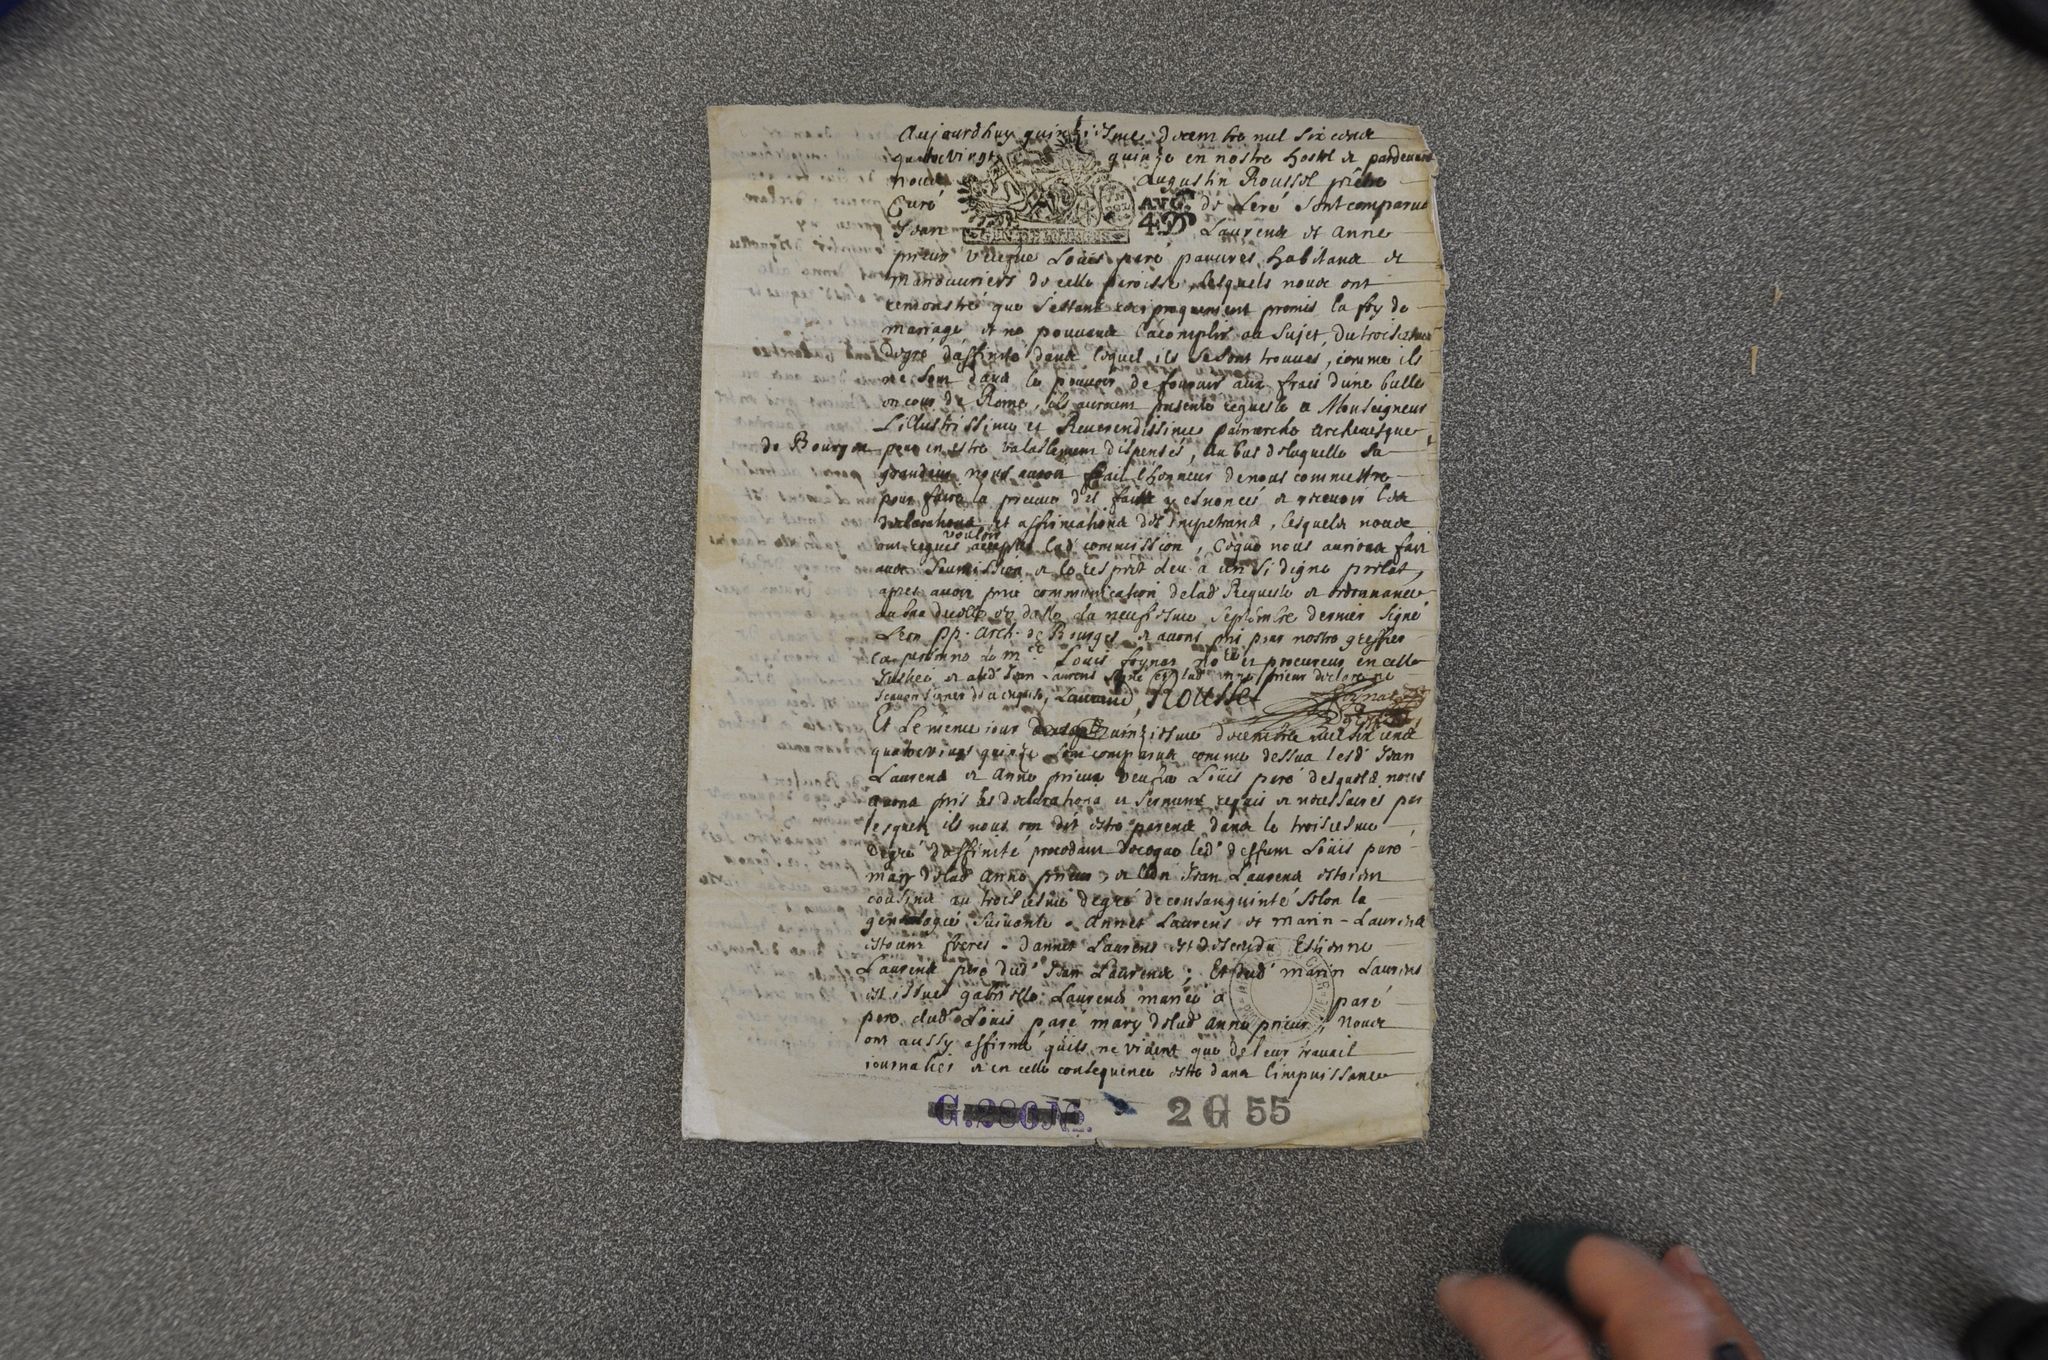 Aujourdhuy quinziesme decembre mil six cens
quatrevingt quinze en nostre hostel et pardevant
nous Augustin Roussel prêtre
Curé de Leré sont comparus
AVG.
4D
Jean Laurens et Anne
prieur veufue Louis paré pauures habitans et
manouuriers de cette paroisse, lesquels nous ont
remonstré que s'estant reciproquement promis la foy de
mariage et ne pouvans lacomplir au sujet du troisiesme
degré d'affinité dans lequel ils se sont trouués, comme ils
ne sont dans le pouvoir de fournir aux frais d'une bulle
en cour de Rome, ils auroient presenté requeste a Monseigneur
Lillustrissime et Reuerendissime patriarche archeuesque
de Bourges pour en estre valablement dispensés, au bas de laquelle sa
grandeur nous auroit fait l'honneur de nous commettre
pour faire la preuue des faits y enoncés et receuoir les
declarations et affirmations des impetrans, lesquels nous
ont requis vouloir accepter lad commission, ce que nous aurions fait
auec soumission et le respect deu a un si digne prelat,
apres auoir pris communication de lad Requeste et ordonnance
au bas d'icelle en datte du neufiesme septembre dernier signé
Leon pp. arch. de Bourges et auons pris pour nostre greffier
la personne de me Louis foynat no.re et procureur en cette
Justice et led Jean Laurens signé et lad anne prieur declaré ne
scauoir signer de ce enquise, Laurend, Rousset
Et le mesme jour quinziesme decembre mil six cens
quatrevins quinze sont comparus comme dessus lesd Jean
Laurens et Anne prieur veufue Loüis paré desquels nous
auons pris les declarations et sermens requis et necessaires par
lesquels ils nous ont dit estre parens dans le troisiesme
degré d'affinité procedant de ce que led deffunt Loüis paré
mary de lad Anne prieur et led Jean Laurens estoient
cousins au troisiesme degré de consanguinté selon la
genealogie suiuante. Annet Laurens et Marin Laurens
estoient freres. d'annet Laurens est descendu Estienne
Laurens pere dud Jean Laurens; Et dud marin Laurens
est issue gabrielle Laurens mariée à paré
pere dud Loüis paré mary de lad Anne prieur; Nous
ont aussy affirmé qu'ils ne vivent que de leur trauail
journalier et en cette consequence estre dans l'impuissance
G.280
2 G 55